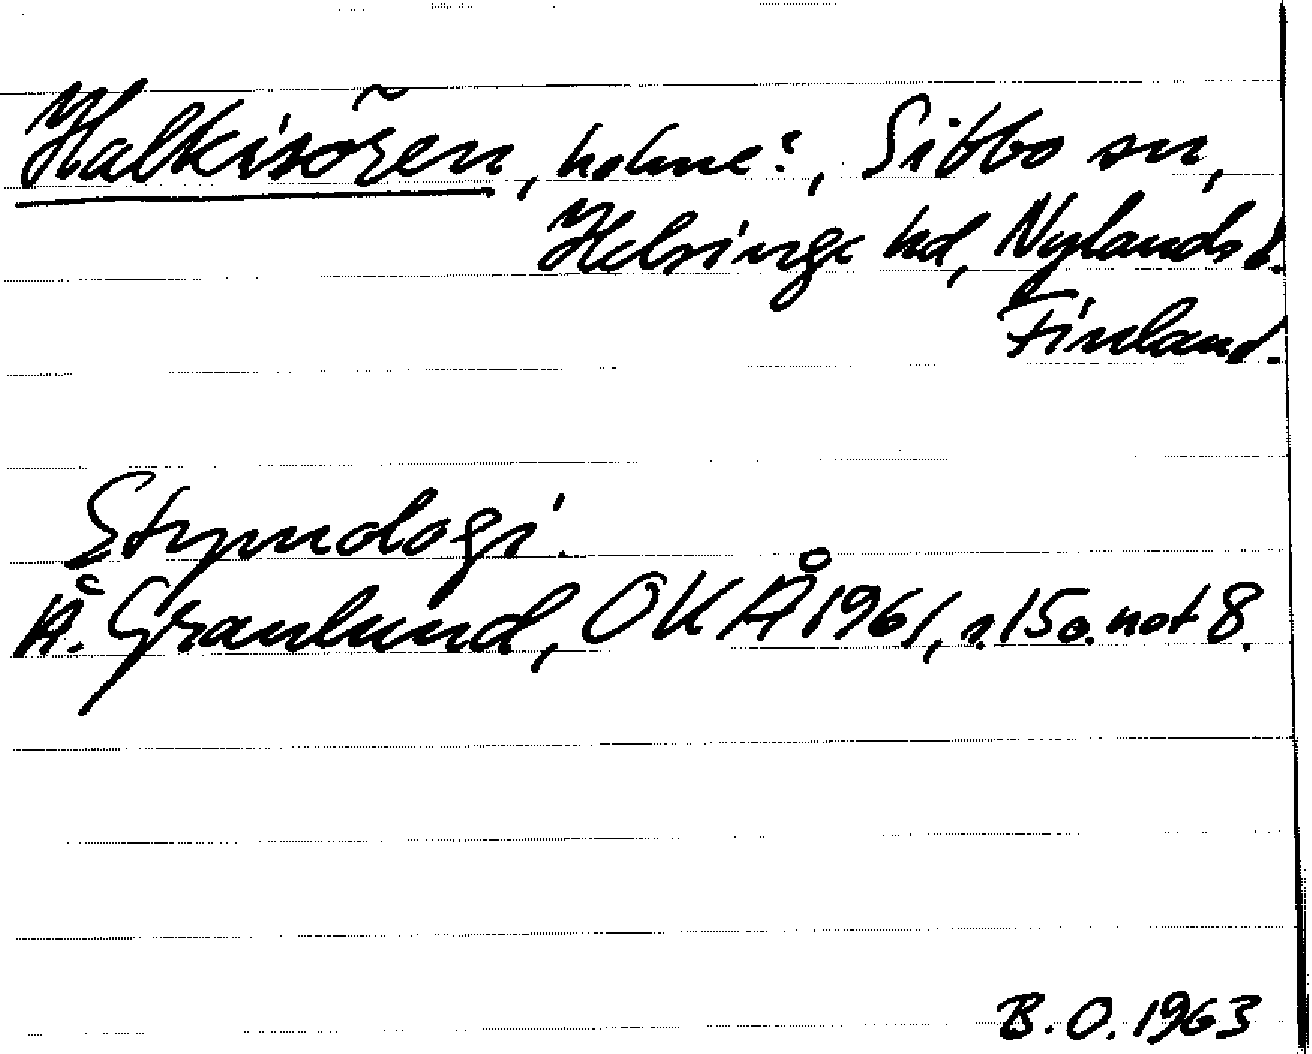 Halkisören, holme?, Sibbo sn,
Helsinge hd, Nylands l.
Finland.
Etymologi.
Å. Granlund, OKÅ 1961, s. 15 o. not 8.
B.O. 1963